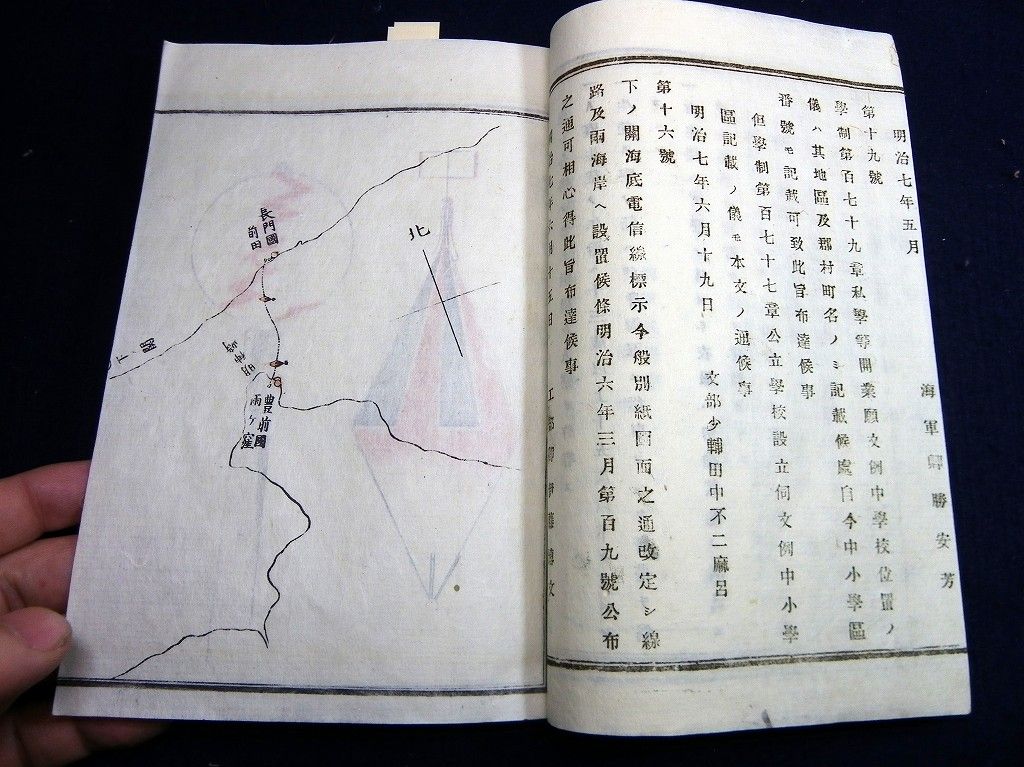 明治七年五月
海軍卿勝安芳
第十九號
學制第百七十九章私學等開業願文例中學校位置ノ
儀ハ其地區及郡村町名ノミ記載候處自今中小學區
番號モ記載可致此旨布達候事
但學制第百七十七章公立學校設立伺文例中小學
區記載ノ儀モ本文ノ通候事
明治七年六月十九日
文部少輔田中不二麻呂
第十六號
下ノ關海底電信線標示今般別紙圖面之通改定シ線
路及兩海岸ヘ設置候條明治六年三月第百九號公布
之通可相心得此旨布達候事
北
長門國
前田
下関
明神崎
豊前國
雨ケ窪